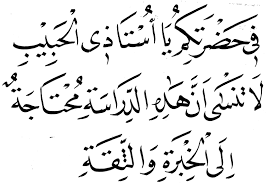 فِي حَضْرَتِكُمْ يَا أُسْتَاذِي الْحَبِيْبِ
لَا تَنْسَى أَنَّ هٰذِهِ الدِّرَاسَةِ مُحْتَاجَةٌ
اِلَى الْخِبْرَةِ وَالثِّقَةِ